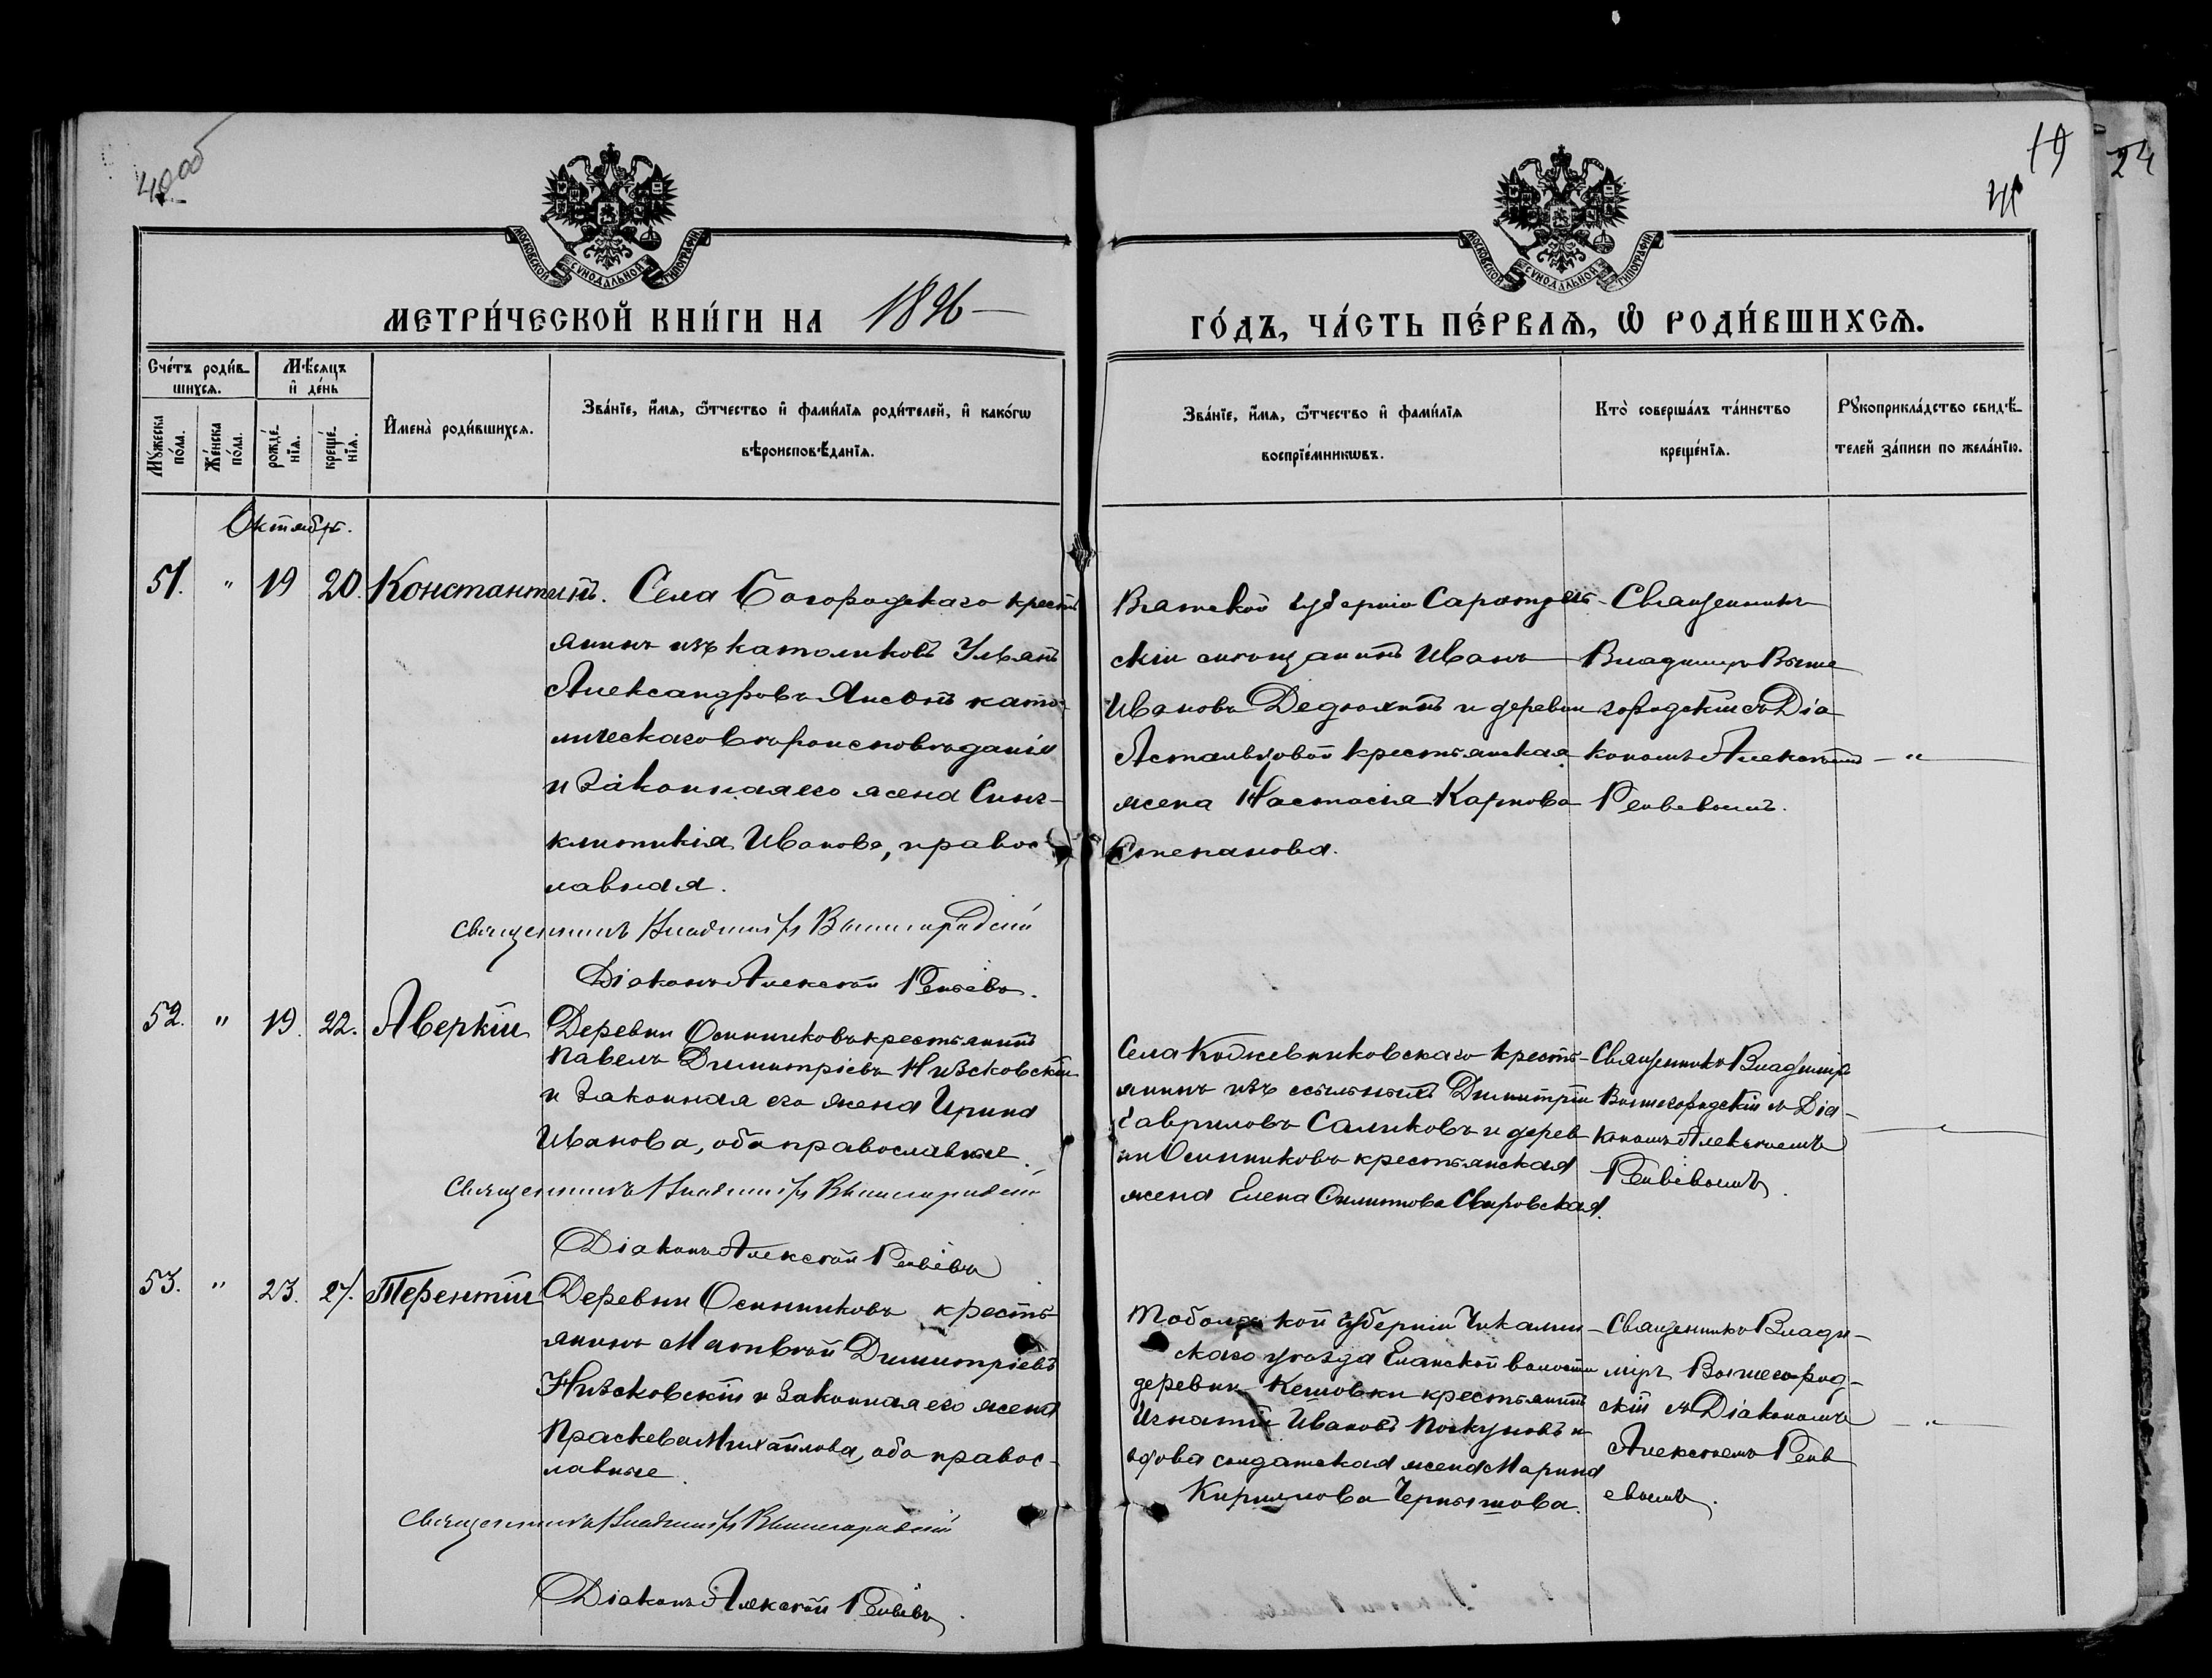 40об
19
24
41
МОСКОВСКОЙ СѴНОДАЛЬНОЙ ТИПОГРАФІИ
МОСКОВСКОЙ СѴНОДАЛЬНОЙ ТИПОГРАФІИ
МЕТРИ́ЧЕСКОЙ КНИ́ГИ НА 1896
ГО́ДЪ, ЧА́СТЬ ПЕ́РВАѦ, Ѽ РОДИ́ВШИХСѦ.
Сче́тъ роди́вшихсѧ.
Мꙋ́жеска по́ла.
Же́нска по́ла.
Мѣ́сяцъ и҆ де́нь
рожде́нїѧ.
креще́нїѧ.
И҆мена̀ роди́вшихсѧ.
Зва́нїе, и҆́мѧ, ѻ҆́тчество и҆ фами́лїѧ роди́телей, и҆ како́гѡ
вѣроисповѣ́данїѧ.
Зва́нїе, и҆́мѧ, ѻ҆́тчество и҆ фами́лїѧ
воспрїе́мникѡвъ.
Кто̀ соверша́лъ та́инство
креще́нїѧ.
Рꙋкоприкла́дство свидѣ́телей за́писи по жела́нїю.
Октябрь.
51. " 19 20. Константинъ.
Села Богородскаго кресть
янинъ изъ католиковъ Ульянъ
Александровъ като-
лическаго вѣроисповѣданія
и законная его жена Син-
клитикія Иванова, правос-
лавная.
Священникъ Владиміръ Вышегородскій
Діаконъ Алексѣй Репьевъ.
Вятской губерніи Сарапуль-
скій мѣщанинъ Иванъ
Ивановъ Дедюхинъ и деревни
Астальцовой крестьянская
жена Настасія Карпова
Степанова.
Священникъ
Владиміръ Выше
городскій съ Діа
кономъ Алексѣемъ
Репьевымъ.
"
52. " 19. 22. Аверкій
Деревни Осинниковъ крестьянинъ
Павелъ Димитріевъ Низковскій
и законная его жена Ирина
Иванова, оба православные.
Священникъ Владиміръ Вышегородскій
Діаконъ Алексѣй Репьевъ
Села Кожевниковскаго кресть-
янинъ изъ ссыльныхъ Димитрій
Гавриловъ Саликовъ и дерев
ни Осинниковъ крестьянская
жена Елена Свировская.
Священникъ Владиміръ
Вышегородскій съ Діа-
кономъ Алексѣемъ
Репьевымъ.
53. " 23. 27. Терентій
Деревни Осинниковъ кресть-
янинъ Матвѣй Димитріевъ
Низковскій и законная его жена
Праскева Михайлова, оба правос-
лавные.
Священникъ Владиміръ Вышегородскій
Діаконъ Алексѣй Репьевъ.
Тобольской губерніи
скаго уѣзда Еланской волости
деревни крестьянинъ
Игнатій Ивановъ и
вдова солдатская жена Марина
Кириллова Чернышова.
Священникъ Влади-
міръ Вышегород-
скій съ Діакономъ
Алексѣемъ Репь
евымъ.
"